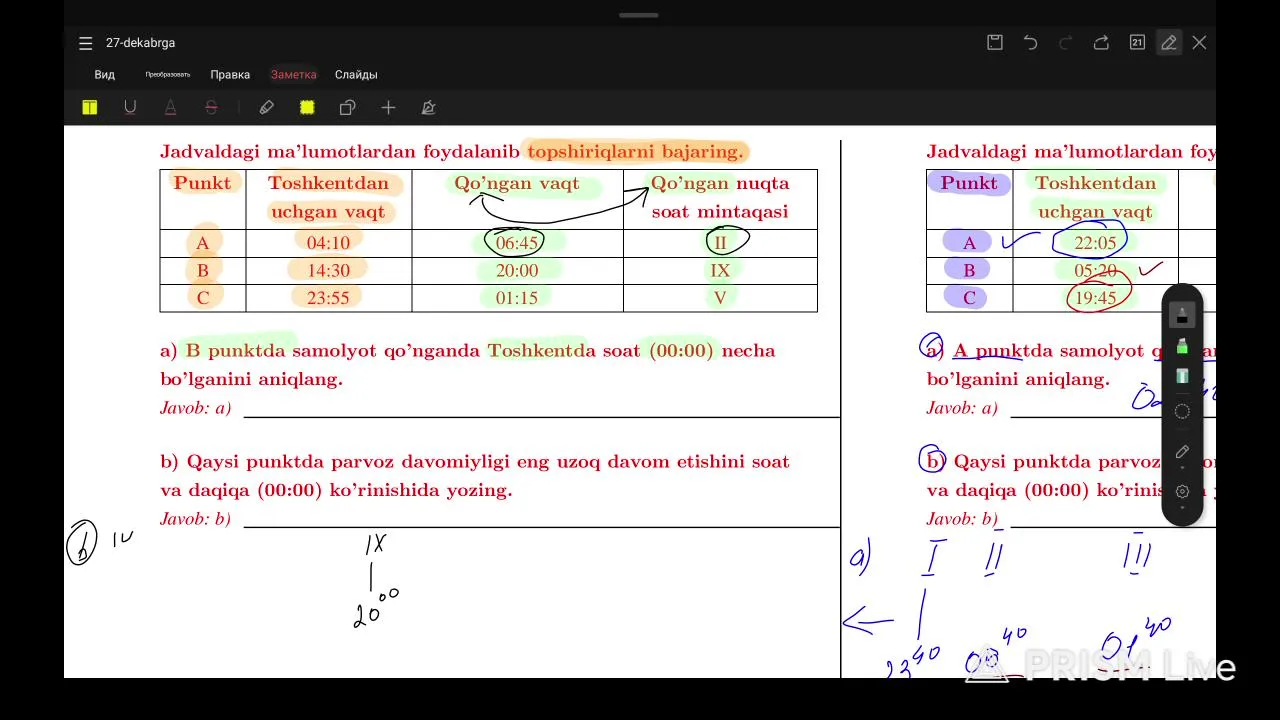 27-dekabrga
21
Вид Преобразовать Правка Заметка Слайды
T U A S
Jadvaldagi ma'lumotlardan foydalanib topshiriqlarni bajaring.
Punkt Toshkentdan uchgan vaqt Qo'ngan vaqt Qo'ngan nuqta soat mintaqasi
A 04:10 06:45 II
B 14:30 20:00 IX
C 23:55 01:15 V
a) B punktda samolyot qo'nganda Toshkentda soat (00:00) necha
bo'lganini aniqlang.
Javob: a)
b) Qaysi punktda parvoz davomiyligi eng uzoq davom etishini soat
va daqiqa (00:00) ko'rinishida yozing.
Javob: b)
IX
20 00
Jadvaldagi ma'lumotlardan foy
Punkt Toshkentdan uchgan vaqt
A 22:05
B 05:20
C 19:45
a) A punktda samolyot
bo'lganini aniqlang.
Javob: a)
b) Qaysi punktda parvoz
va daqiqa (00:00) ko'rinis
Javob: b)
a) I II III
23 40 00 40 01 40
PRISM Live